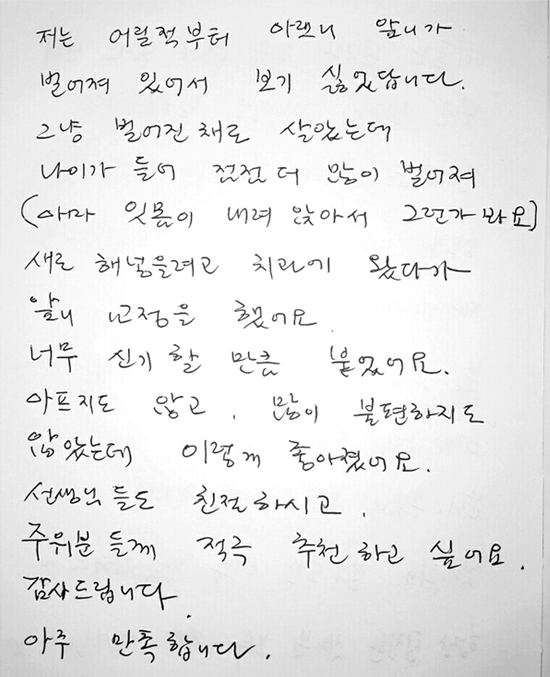 저는 어릴적부터 아랫니 앞니가
벌어져 있어서 보기 싫었답니다.
그냥 벌어진채로 살았는데
나이가 들어 점점 더 많이 벌어져
(아마 잇몸이 내려 앉아서 그런가 봐요)
새로 해넣을려고 치과에 왔다가
앞니 교정을 했어요.
너무 신기 할 만큼 붙었어요.
아프지도 않고, 많이 불편하지도
않았는데 이렇게 좋아졌어요.
선생님 들도 친절 하시고,
주위분 들께 적극 추천 하고 싶어요.
감사드립니다.
아주 만족합니다.